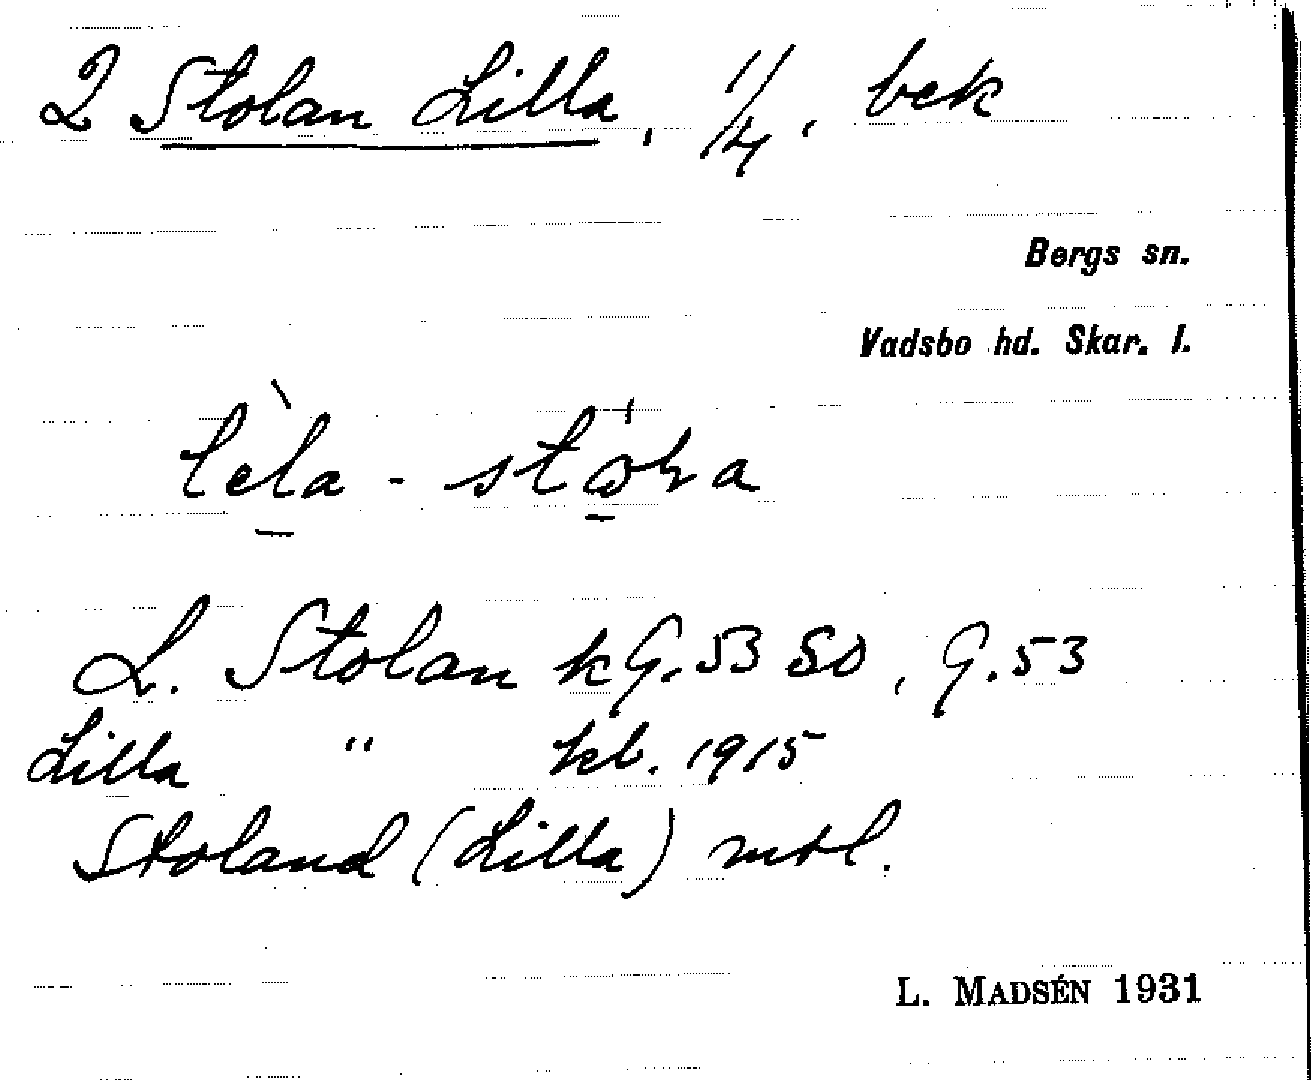 2 Stolan Lilla, 1/4, bek
Bergs sn.
Vadsbo hd. Skar. l.
L. Stolan k G. 53 SO, G. 53
Lilla " kb. 1915
Stoland (Lilla) mtl.
L. MADSÉN 1931